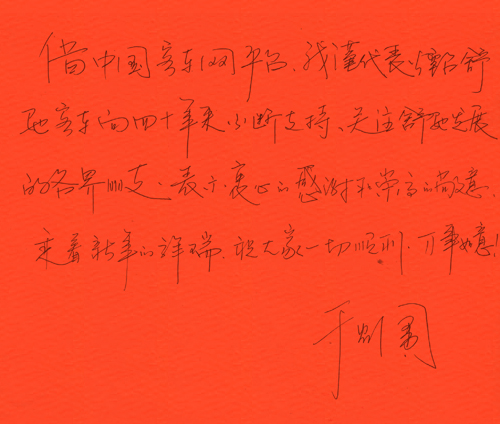 借中国客车网平台、我谨代表烟台舒
驰客车向四十年来、不断支持、关注舒驰发展
的各界朋友、表示衷心的感谢和崇高的敬意
乘着新年的祥瑞、祝大家一切顺利、万事如意!
于